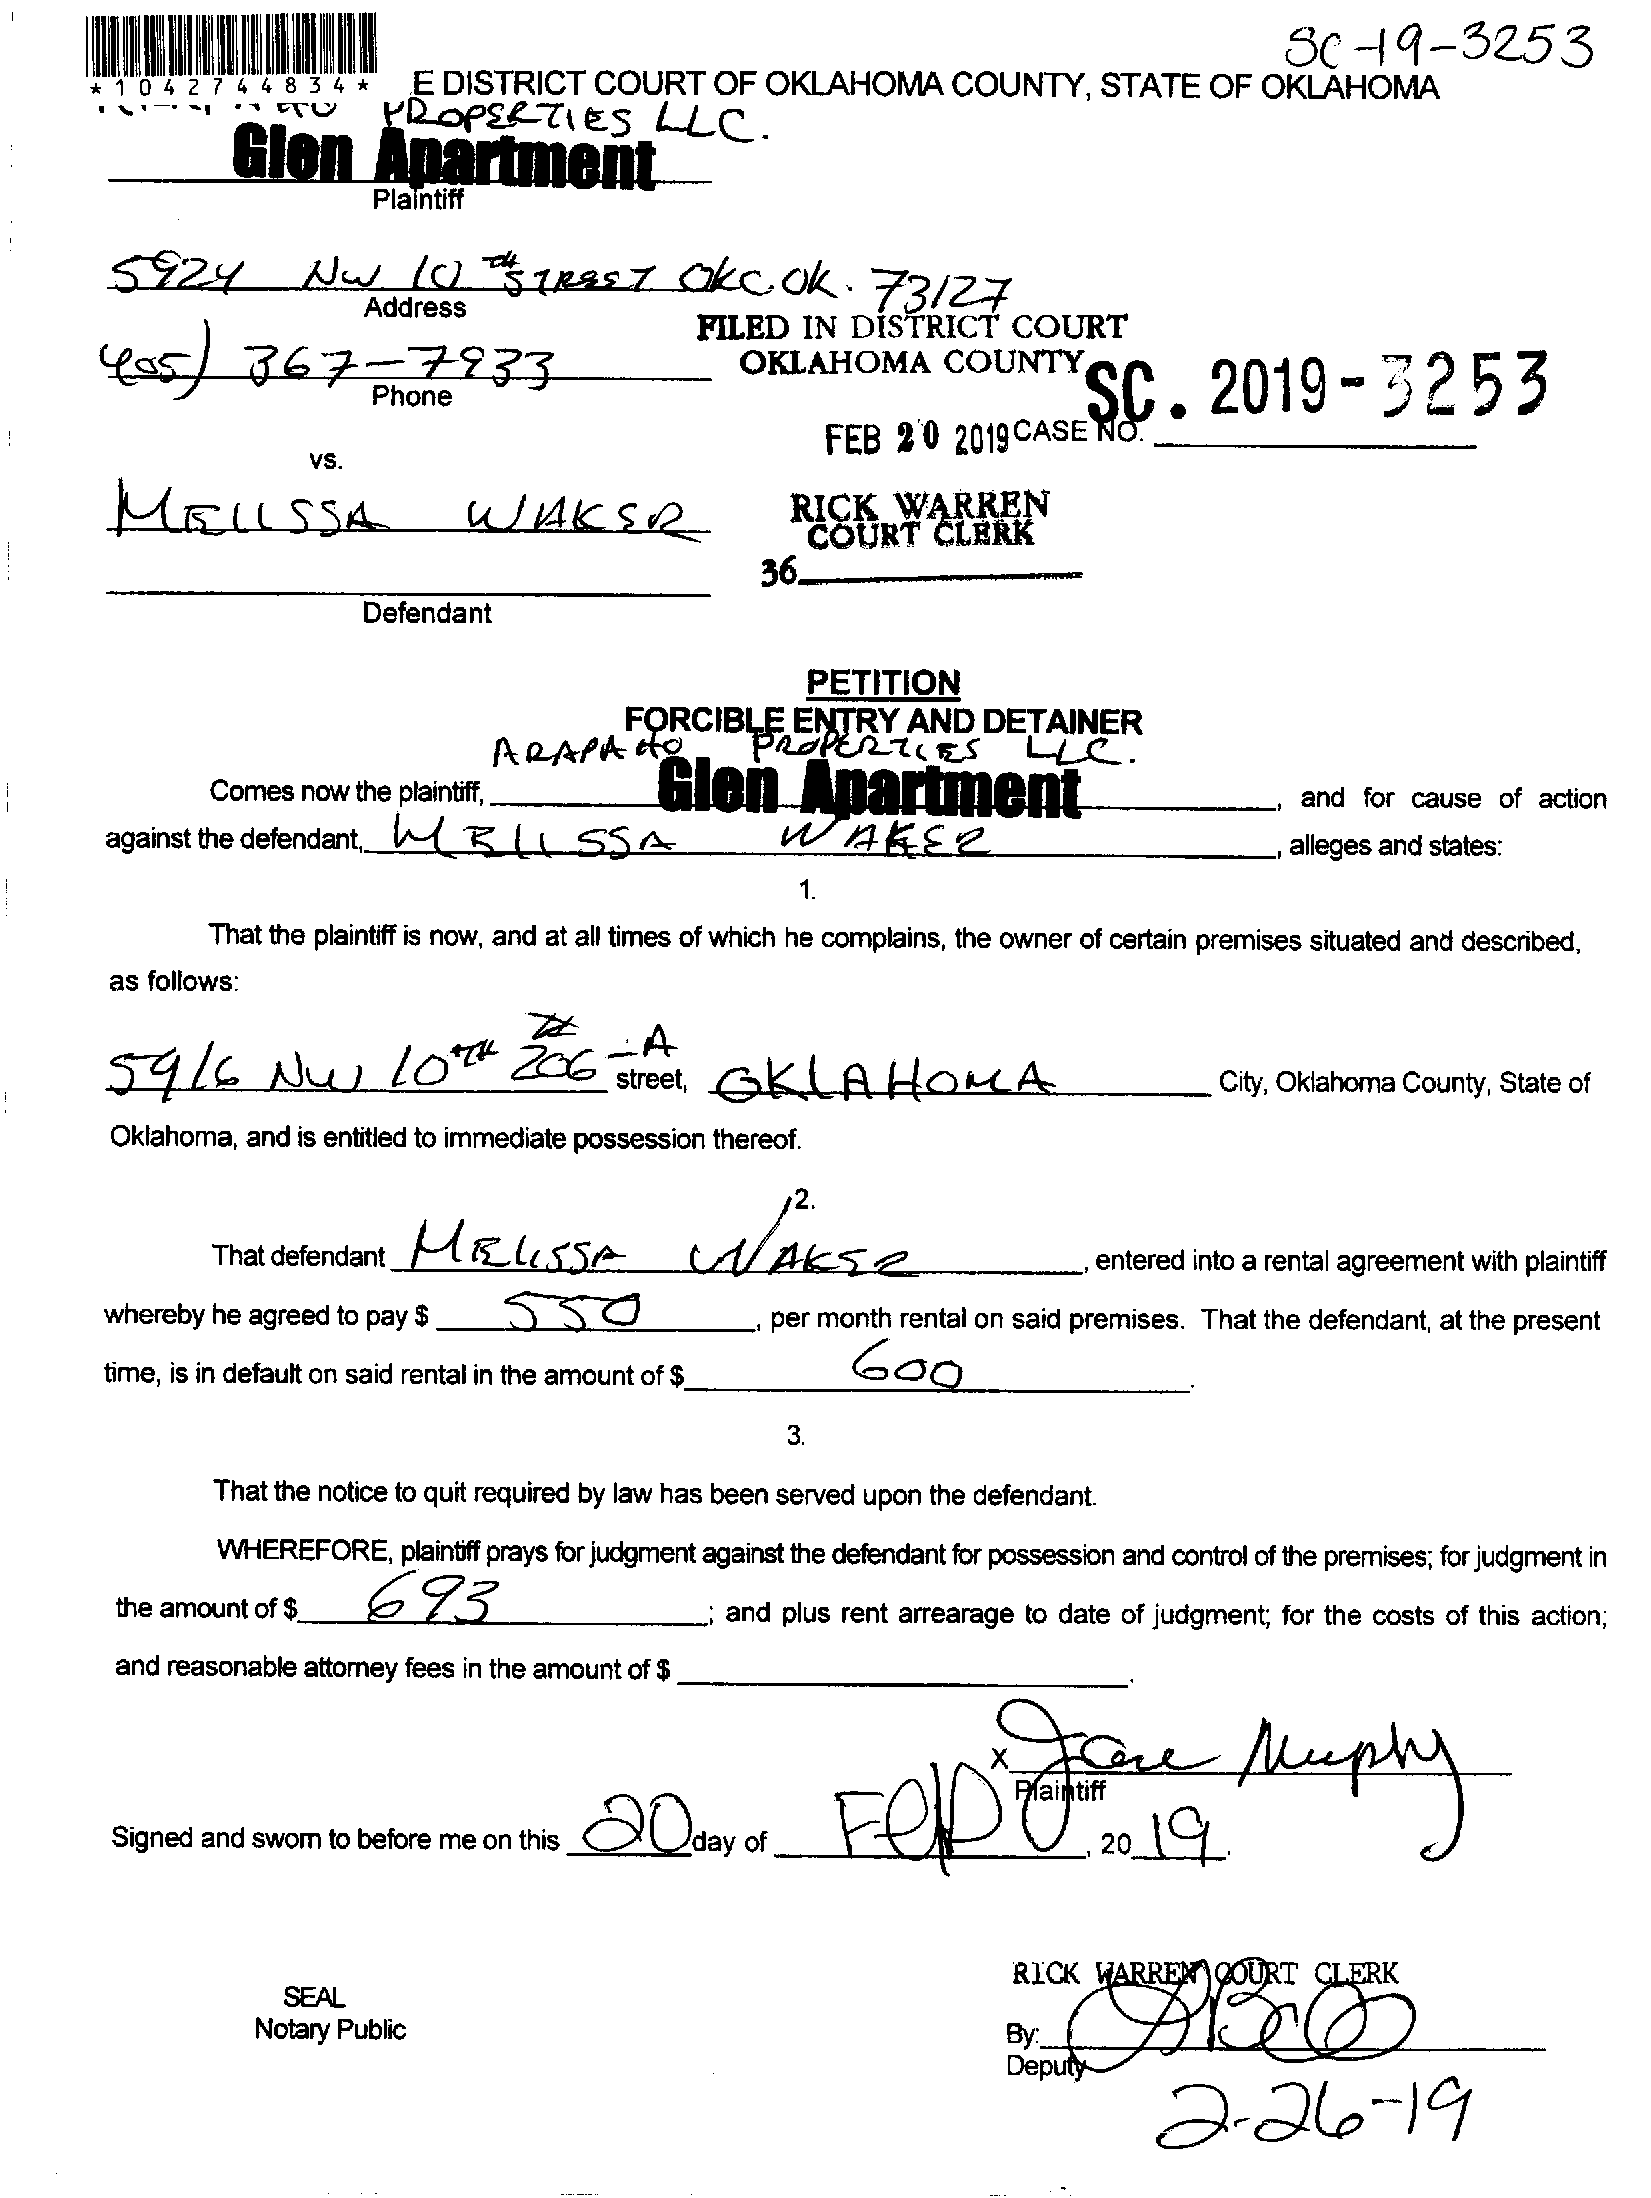 SC-19-3253
*1042744834*
E DISTRICT COURT OF OKLAHOMA COUNTY, STATE OF OKLAHOMA
PROPERTIES LLC.
Glen Apartment
Plaintiff
5924 NW 10 TH STREET OKC OK. 73127
Address
FILED IN DISTRICT COURT
OKLAHOMA COUNTY
405) 367-7933
Phone
SC. 2019-3253
FEB 20 2019 CASE NO.
vs.
MELISSA WAKER
RICK WARREN
COURT CLERK
36
Defendant
PETITION
FORCIBLE ENTRY AND DETAINER
ARAPAHO PROPERTIES LLC.
Comes now the plaintiff, Glen Apartment, and for cause of action
against the defendant, MELISSA WAKER, alleges and states:
1.
That the plaintiff is now, and at all times of which he complains, the owner of certain premises situated and described,
as follows:
5916 NW 10TH # 206-A street, OKLAHOMA City, Oklahoma County, State of
Oklahoma, and is entitled to immediate possession thereof.
2.
That defendant MELISSA WAKER, entered into a rental agreement with plaintiff
whereby he agreed to pay $ 550, per month rental on said premises. That the defendant, at the present
time, is in default on said rental in the amount of $ 600.
3.
That the notice to quit required by law has been served upon the defendant.
WHEREFORE, plaintiff prays for judgment against the defendant for possession and control of the premises; for judgment in
the amount of $ 693; and plus rent arrearage to date of judgment; for the costs of this action;
and reasonable attorney fees in the amount of $ .
x Jane Murphy
Plaintiff
Signed and sworn to before me on this 20 day of Feb, 2019.
RICK WARREN COURT CLERK
SEAL
Notary Public
By:
Deputy
2-26-19